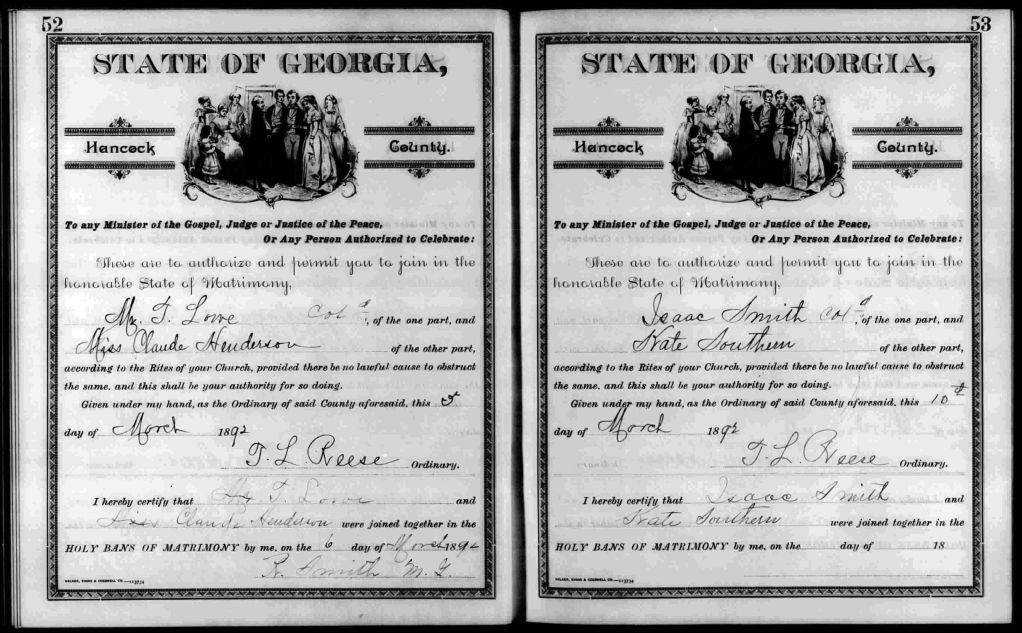 52
STATE OF GEORGIA,
Hancock County.
To any Minister of the Gospel, Judge or Justice of the Peace,
Or Any Person Authorized to Celebrate:
These are to authorize and permit you to join in the
honorable State of Matrimony,
T. Lowe Cold, of the one part, and
Miss Claude Henderson of the other part,
according to the Rites of your Church, provided there be no lawful cause to obstruct
the same, and this shall be your authority for so doing.
Given under my hand, as the Ordinary of said County aforesaid, this 5
day of March 1892
T. L. Reese Ordinary.
I hereby certify that T. Lowe and
Miss Claude Henderson were joined together in the
HOLY BANS OF MATRIMONY by me, on the 6 day of March 1892
R. Smith M. G.
WALKER, EVANS & COGSWELL CO.
53
STATE OF GEORGIA,
Hancock County.
To any Minister of the Gospel, Judge or Justice of the Peace,
Or Any Person Authorized to Celebrate:
These are to authorize and permit you to join in the
honorable State of Matrimony,
Isaac Smith Cold, of the one part, and
Kate Southern of the other part,
according to the Rites of your Church, provided there be no lawful cause to obstruct
the same, and this shall be your authority for so doing.
Given under my hand, as the Ordinary of said County aforesaid, this 10
day of March 1892
T. L. Reese Ordinary.
I hereby certify that Isaac Smith and
Kate Southern were joined together in the
HOLY BANS OF MATRIMONY by me, on the day of 18
WALKER, EVANS & COGSWELL CO.